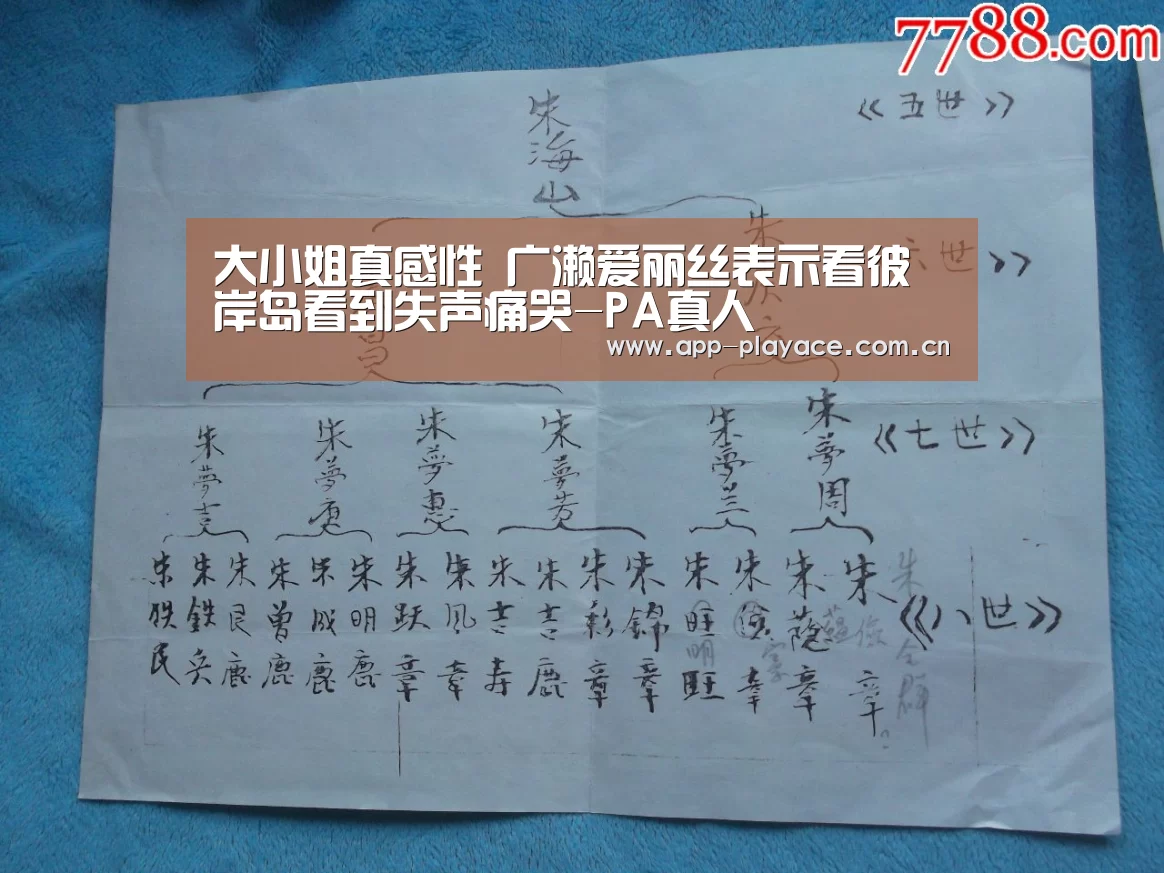 7788.com
朱海山
《五世》
大小姐真感性 广濑爱丽丝表示看彼
岸岛看到失声痛哭-PA真人
www.app-playace.com.cn
六世》
昌
《七世》
朱夢吉
朱夢庚
朱夢惠
朱夢芳
朱夢兰
朱夢周
《八世》
朱铁民
朱鉄兵
朱艮鹿
朱曾鹿
朱成鹿
朱明鹿
朱跃章
朱风章
朱吉寿
朱吉鹿
朱彩章
朱錦章
朱旺旺
明
朱俭章
朱蔭章
蕴
朱俭章
朱全群